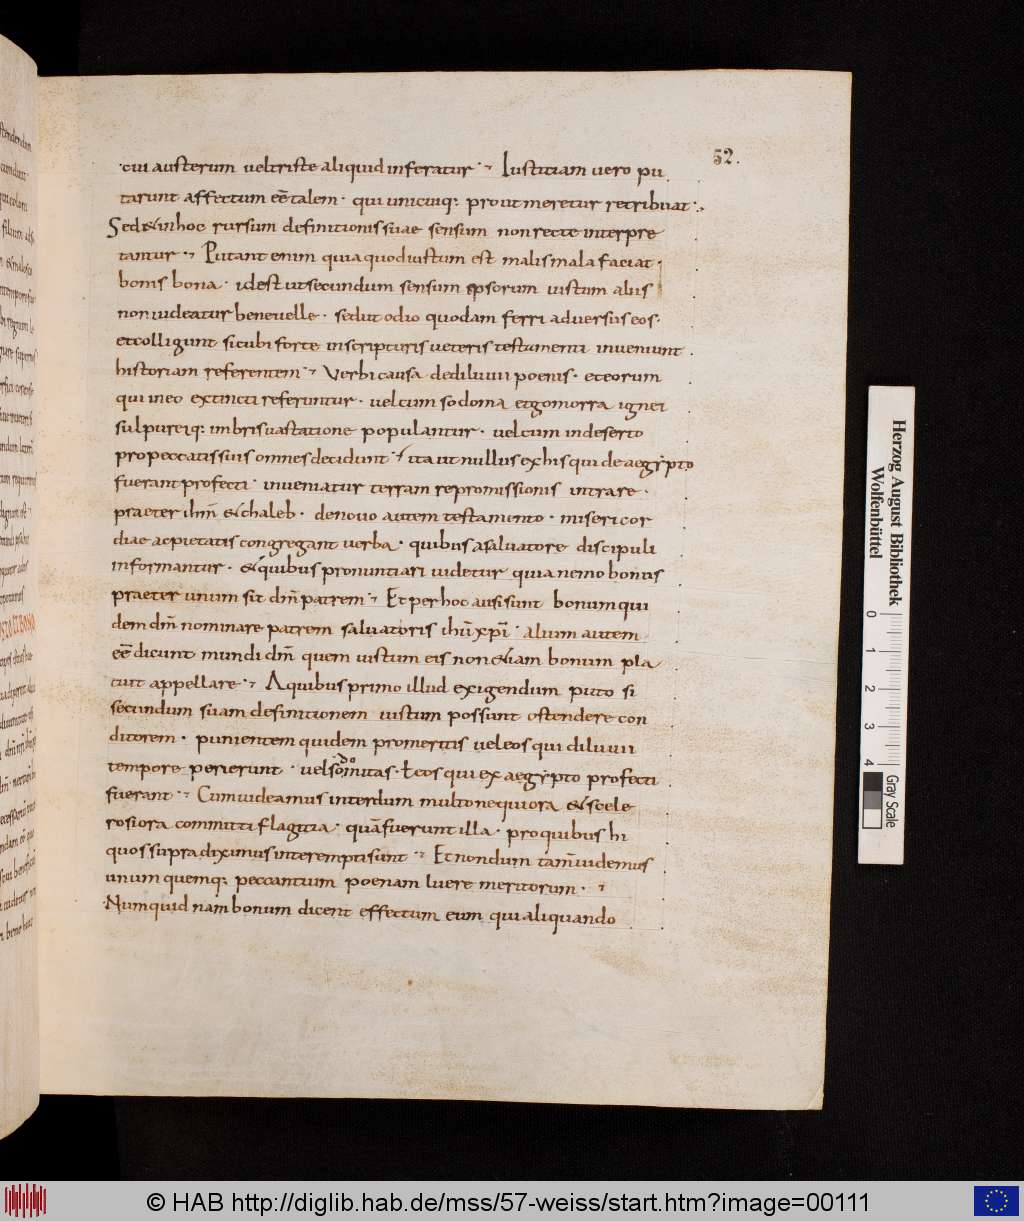 52.
cui austerum vel triste aliquid inferatur · Iustitiam uero pu
tarunt affectum eē talem · qui unicuiq: prout meretur retribuat ·
Sed & in hoc rursum definitionis suae sensum non recte interpre
tantur · Putant enim quia quod iustum est malis mala faciat ·
bonis bona · id est ut secundum sensum ipsorum iustum aliis
non uideatur bene uelle · sed ut odio quodam ferri aduersus eos ·
et colligunt sicubi forte in scripturis ueteris testamenti inueniunt
historiam referentem · Verbi causa de diluuii poenis · et eorum
qui in eo extincti referuntur · uel cum sodoma et gomorra ignei
sulpureiq: imbris uastatione populantur · uel cum in deserto
pro peccatis suis omnes decidunt · ita ut nullus ex his qui de aegypto
fuerant profecti · inueniatur terram repromissionis intrare ·
praeter ihm̄ & chaleb · de nouo autem testamento · misericor
diae ac pietatis congregant uerba · quibus a saluatore discipuli
informantur · & quibus pronuntiari uidetur quia nemo bonus
praeter unum sit dm̄ patrem · Et per hoc ausi sunt bonum qui
dem dm̄ nominare patrem saluatoris ihū xpī · alium autem
eē dicunt mundi dm̄ quem iustum eis non &iam bonum pla
cuit appellare · A quibus primo illud exigendum puto si
secundum suam definitionem iustum possunt ostendere con
ditorem · punientem quidem pro meritis uel eos qui diluuii
tempore perierunt · uel sodomitas · ł eos qui ex aegypto profecti
fuerant · Cum uideamus interdum multo nequiora & scele
rosiora committi flagitia · quā fuerunt illa · pro quibus hi
quos supra diximus interempti sunt · Et nondum tam̄ uidemus
unum quemq: peccantium poenam luere meritorum ·
Numquid nam bonum dicent effectum eum qui aliquando
Herzog August Bibliothek
Wolfenbüttel
0 1 2 3 4
Gray Scale
© HAB http://diglib.hab.de/mss/57-weiss/start.htm?image=00111